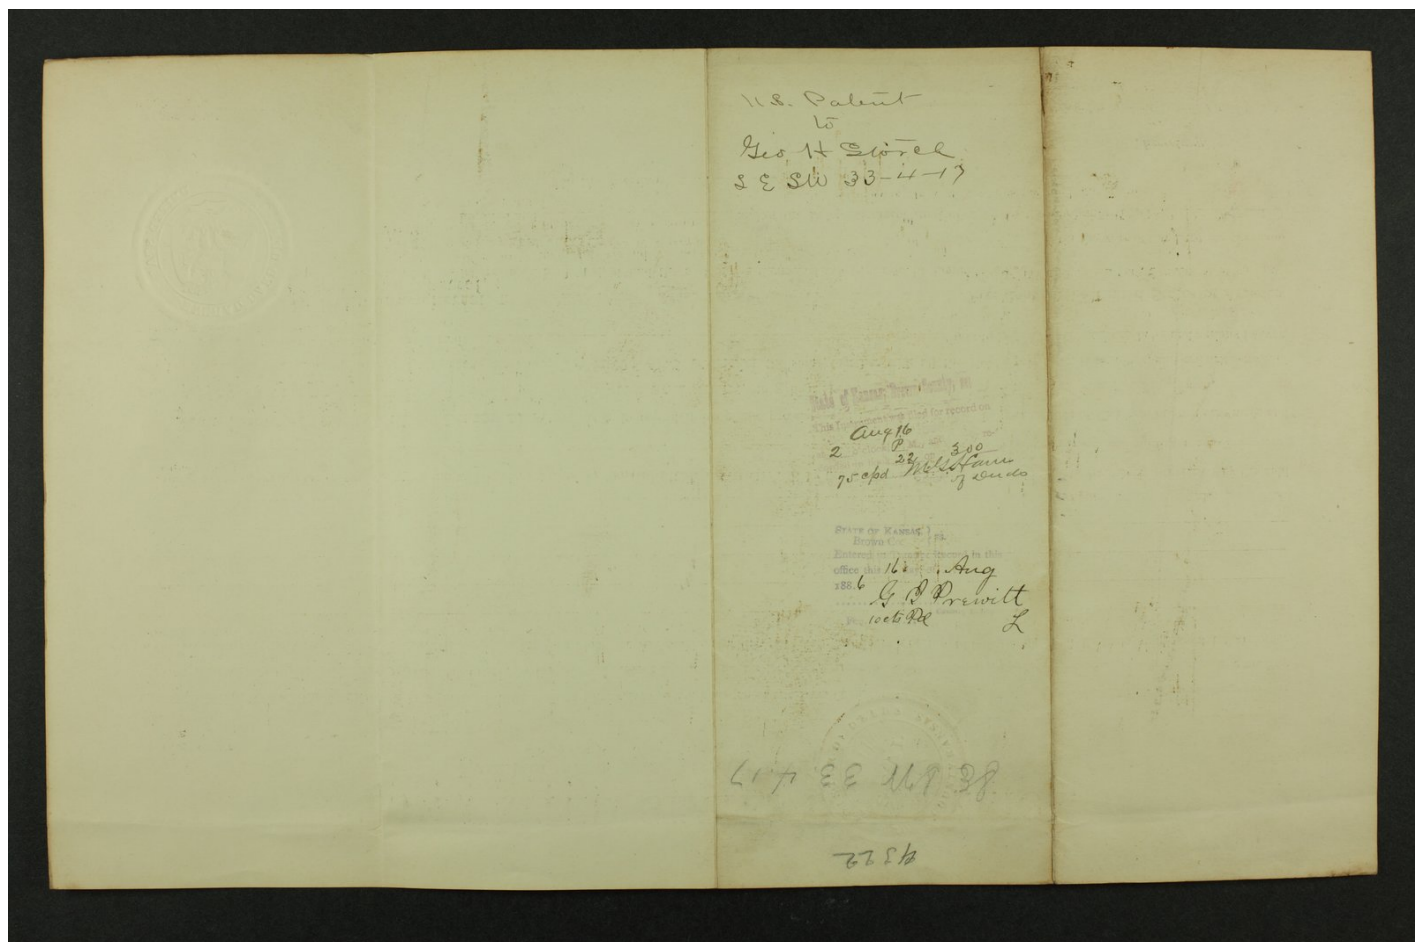 U.S. Patent
to
Geo. H Storch
S E SW 33-4-17
State of Kansas, Brown County, ss
This Instrument was filed for record on
Aug 16
2 P
22 300
75c pd
of Deeds
STATE OF KANSAS } ss.
Brown Co.
Entered in Transfer Record in this
office this 16 day of Aug
1886
G I Prewitt
10cts Pd L
SE SW 33 4 17
4322